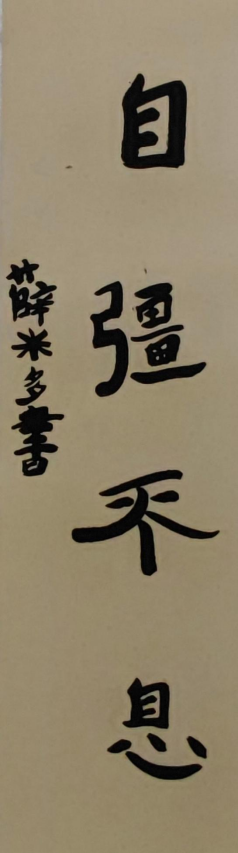 自彊不息
薛米多書